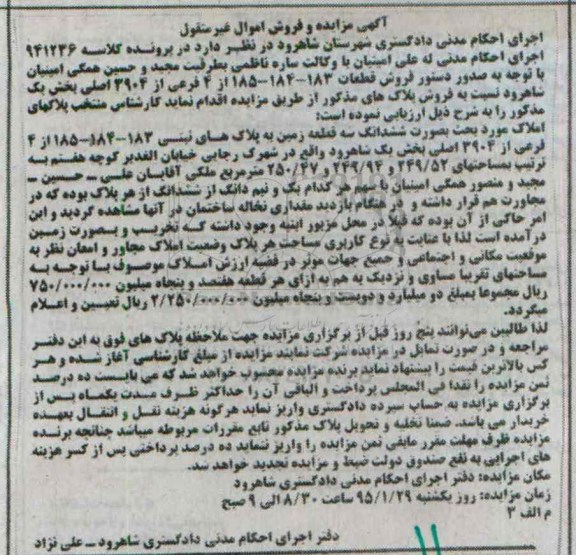 آگهی مزایده و فروش اموال غیر منقول
اجرای احکام مدنی دادگستری شهرستان شاهرود در نظر دارد در پرونده کلاسه ۹۴۱۲۳۶
اجرای احکام مدنی له علی امینیان با وکالت ساره ناظمی بطرفیت مجید و حسین همگی امینیان
با توجه به صدور دستور فروش قطعات ۱۸۳-۱۸۴-۱۸۵ از ۴ فرعی از ۳۹۰۴ اصلی بخش یک
شاهرود نسبت به فروش پلاک های مذکور از طریق مزایده اقدام نماید کارشناس منتخب پلاکهای
مذکور را به شرح ذیل ارزیابی نموده است:
املاک مورد بحث بصورت ششدانگ سه قطعه زمین به پلاک های ثبتی ۱۸۳-۱۸۴-۱۸۵ از ۴
فرعی از ۳۹۰۴ اصلی بخش یک شاهرود واقع در شهرک رجایی خیابان الغدیر کوچه هفتم به
ترتیب بمساحتهای ۲۴۹/۵۲ و ۲۴۹/۹۴ و ۲۵۰/۴۷ مترمربع ملکی آقایان علی ـ حسین ـ
مجید و منصور همگی امینیان با سهم هر کدام یک و نیم دانگ از ششدانگ از هر پلاک بوده که در
مجاورت هم قرار داشته و در هنگام بازدید مقداری نخاله ساختمان در آنها مشاهده گردید و این
امر حاکی از آن بوده که قبلا در محل مزبور ابنیه وجود داشته که تخریب و بصورت زمین
درآمده است لذا با عنایت به نوع کاربری مساحت هر پلاک وضعیت املاک مجاور و امعان نظر به
موقعیت مکانی و اجتماعی و جمیع جهات موثر در قضیه ارزش املاک موصوف با توجه به
مساحتهای تقریبا مساوی و نزدیک به هم به ازای هر قطعه هفتصد و پنجاه میلیون ۷۵۰/۰۰۰/۰۰۰
ریال مجموعا بمبلغ دو میلیارد و دویست و پنجاه میلیون ۲/۲۵۰/۰۰۰/۰۰۰ ریال تعیین و اعلام
میگردد.
لذا طالبین می‌توانند پنج روز قبل از برگزاری مزایده جهت ملاحظه پلاک های فوق به این دفتر
مراجعه و در صورت تمایل در مزایده شرکت نمایند مزایده از مبلغ کارشناسی آغاز شده و هر
کس بالاترین قیمت را پیشنهاد نماید برنده مزایده محسوب خواهد شد که می بایست ده درصد
ثمن مزایده را نقدا فی المجلس پرداخت و الباقی آن را حداکثر ظرف مدت یکماه پس از
برگزاری مزایده به حساب سپرده دادگستری واریز نماید هرگونه هزینه نقل و انتقال بعهده
خریدار می باشد. ضمنا تخلیه و تحویل پلاک مذکور تابع مقررات مربوطه میباشد چنانچه برنده
مزایده ظرف مهلت مقرر مابقی ثمن مزایده را واریز ننماید ده درصد پرداختی پس از کسر هزینه
های اجرایی به نفع صندوق دولت ضبط و مزایده تجدید خواهد شد.
مکان مزایده: دفتر اجرای احکام مدنی دادگستری شاهرود
زمان مزایده: روز یکشنبه ۹۵/۱/۲۹ ساعت ۸/۳۰ الی ۹ صبح
م الف ۳
دفتر اجرای احکام مدنی دادگستری شاهرود ـ علی نژاد